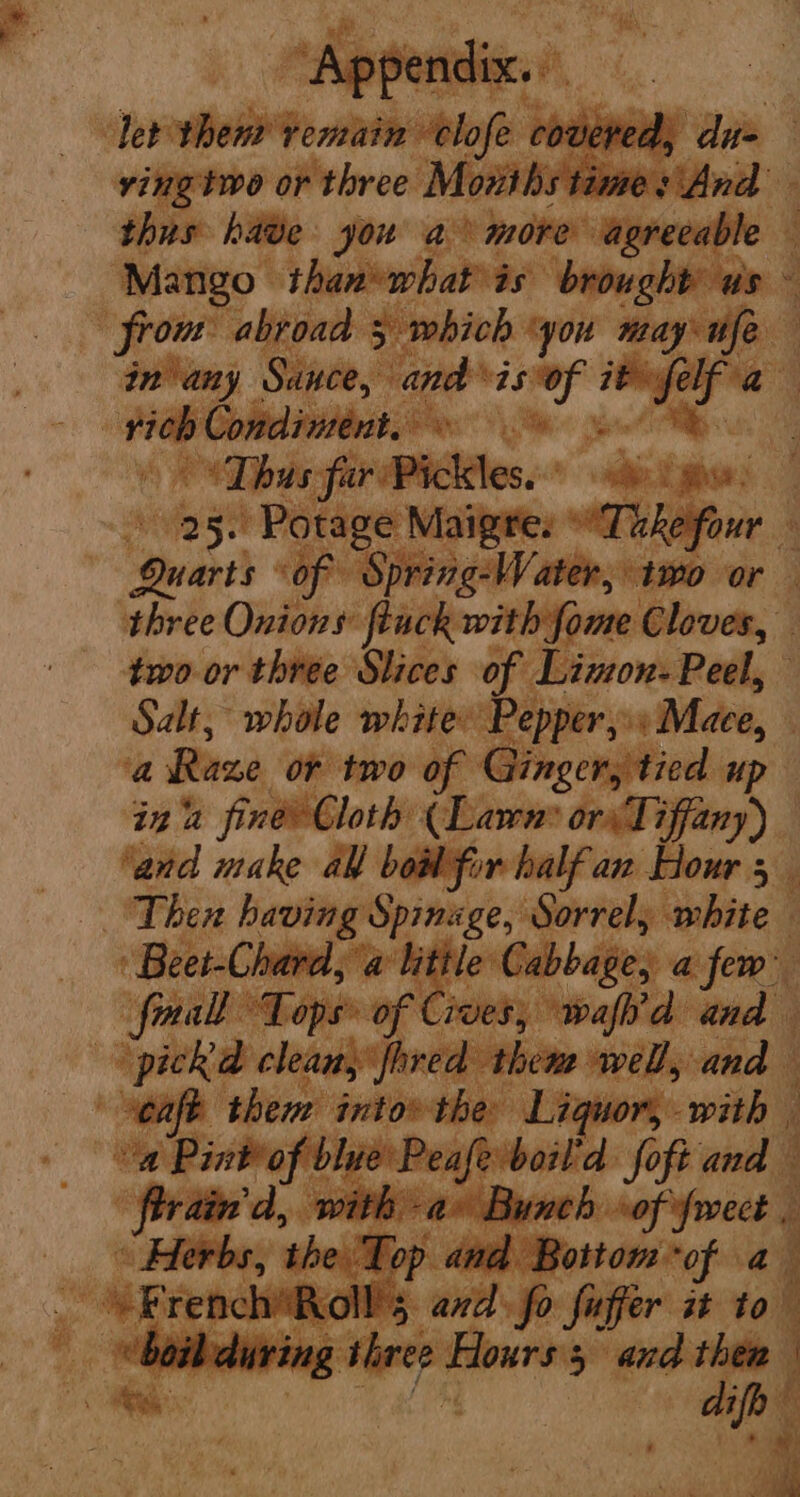 Appendix.
let them remain cloſe covered, du-
ring two or three Months time: And
thus have you a more agreeable
Mango than what is brought us
from abroad; which you may uſe
in any Sauce, and is of it ſelf a
rich Condiment.
Thus far Pickles.
25. Potage Maigre. Take four
Quarts of Spring-Water, two or
three Onions ſtuck with ſome Cloves,
two or three Slices of Limon-Peel,
Salt, whole white Pepper, Mace,
a Raze or two of Ginger, tied up
in a fine Cloth (Lawn or Tiffany)
and make all boil for half an Hour;
Then having Spinage, Sorrel, white
Beet-Chard, a little Cabbage, a few
ſmall Tops of Cives, waſh'd and
pick'd clean, ſhred them well, and
caſt them into the Liquor, with
a Pint of blue Peaſe boil'd ſoft and
ſtrain'd, with a Bunch of ſweet
Herbs, the Top and Bottom of a
French Roll; and ſo ſuffer it to
boil during three Hours; and then
diſh